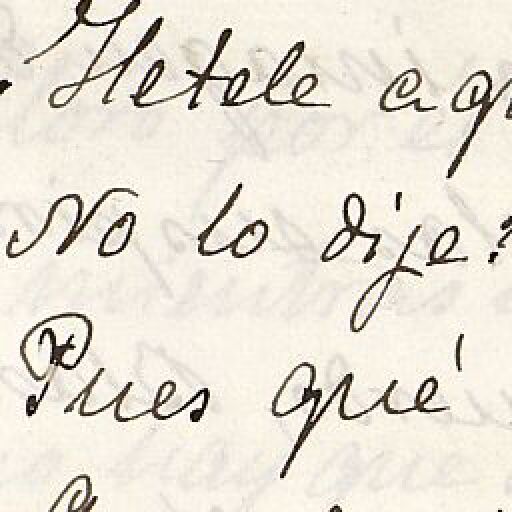 Hetele aq
No lo dije?
Pues qué